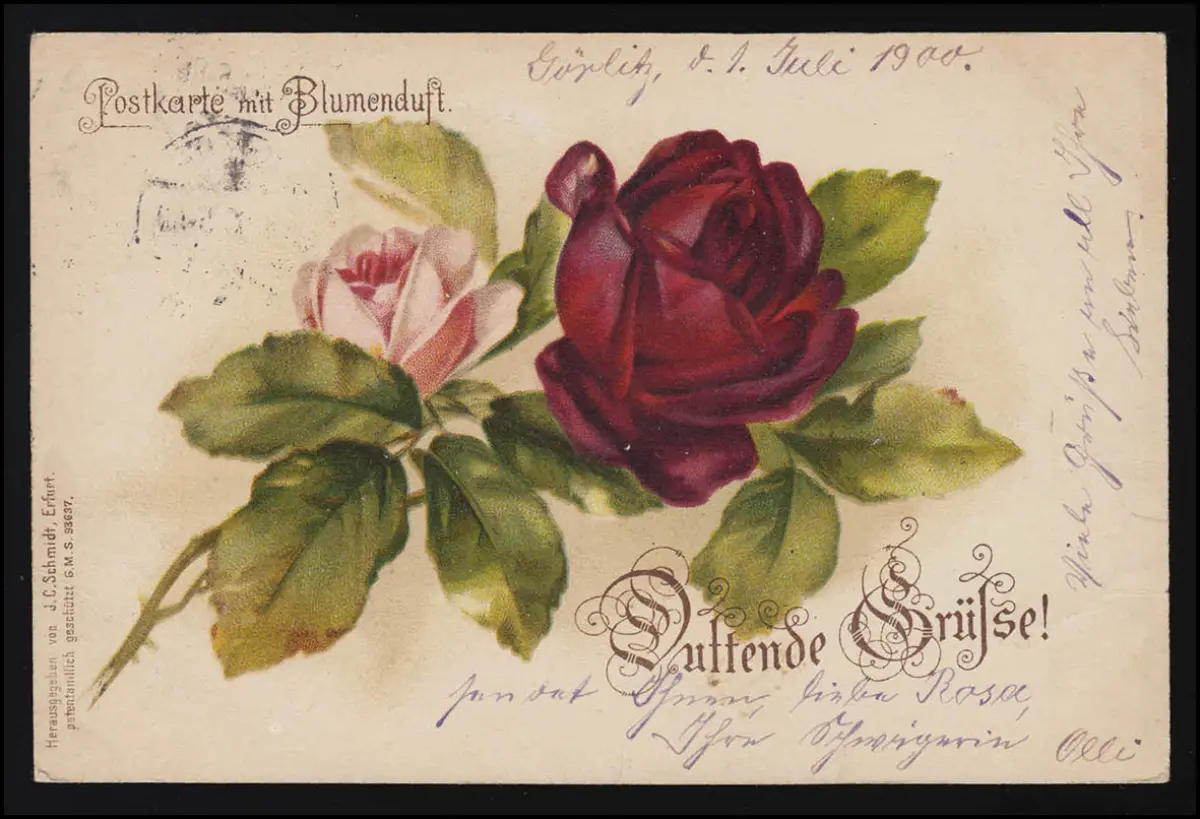 Görlitz, d. 1. Juli 1900.
Postkarte mit Blumenduft.
Duftende Grüsse!
sendet Ihnen, liebe Rosa,
Ihre Schwägerin Olli
Viele Grüße an all Ihre
Lieben.
Herausgegeben von J.C. Schmidt, Erfurt.
patentamtlich geschützt G.M.S. 93637.